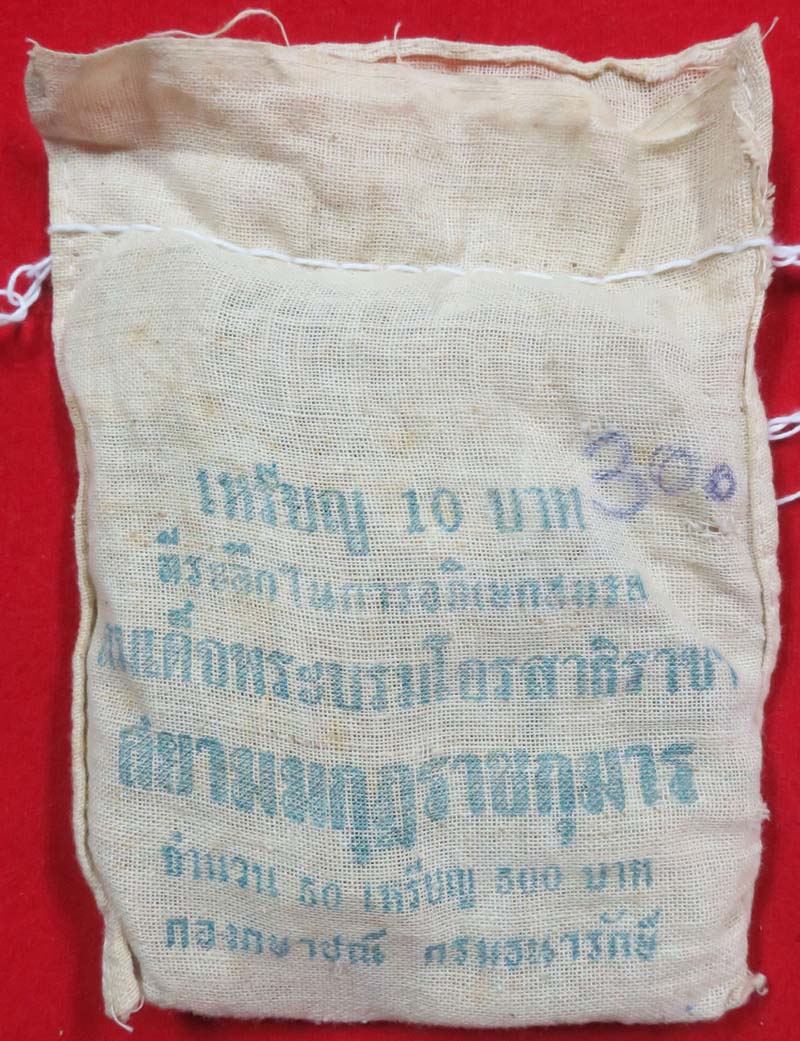 เหรียญ 10 บาท
300
ที่ระลึกในการอภิเษกสมรส
สมเด็จพระบรมโอรสาธิราชฯ
สยามมกุฎราชกุมาร
จำนวน 50 เหรียญ 500 บาท
กองกษาปณ์ กรมธนารักษ์